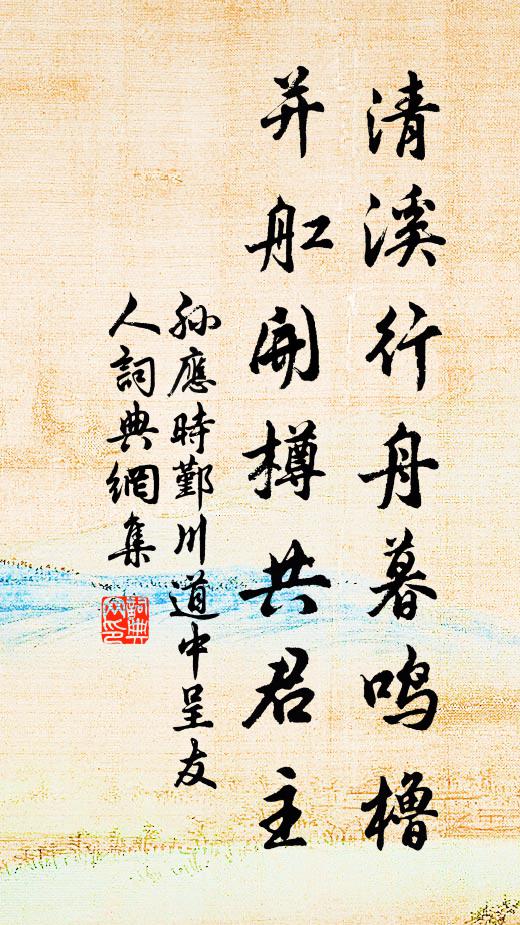 清溪行舟暮鸣橹
并舡開樽共君主
孙應時鄞川道中呈友
人詞典網集
詞典